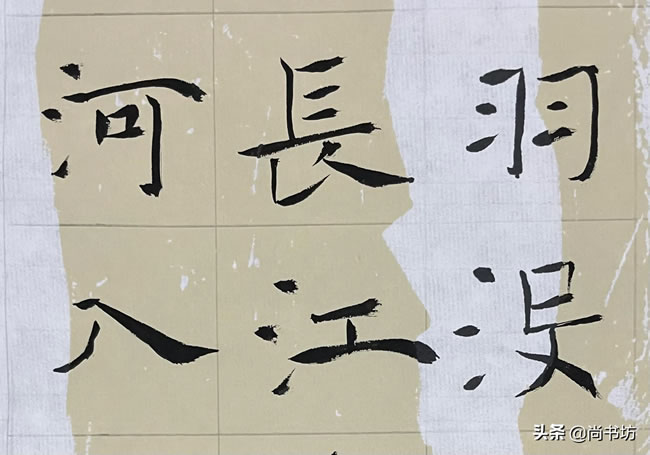 羽没
長江
河入
头条 @尚书坊